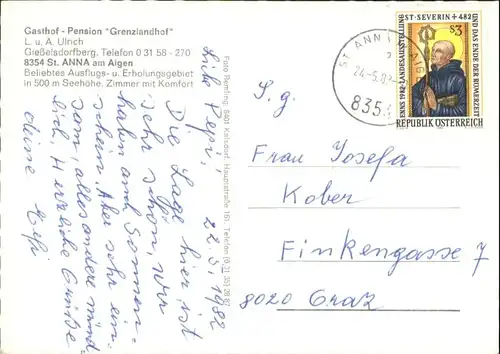 Gasthof - Pension "Grenzlandhof"
L. u. A. Ulrich
Gießelsdorfberg, Telefon 0 31 58 - 270
8354 St. ANNA am Aigen
Beliebtes Ausflugs- u. Erholungsgebiet
in 500 m Seehöhe, Zimmer mit Komfort
22.5.1982
Liebe Pepi!
Die Lage hier ist
sehr schön, wir
haben Sonnen-
schein. Aber sehr ein-
sam, alles andere sind
Herzliche Grüße
deine Hefi
Foto Reinfling, 8401 Kalsdorf, Hauptstraße 181, Telefon
ST. ANNA AIGEN
24.-5.82
8354
ENNS 1982 • LANDESAUSSTELLUNG
ST • SEVERIN + 482
UND DAS ENDE DER RÖMERZEIT
S 3
REPUBLIK ÖSTERREICH
S.g.
Frau Josefa
Kober
Finkengasse 7
8020 Graz